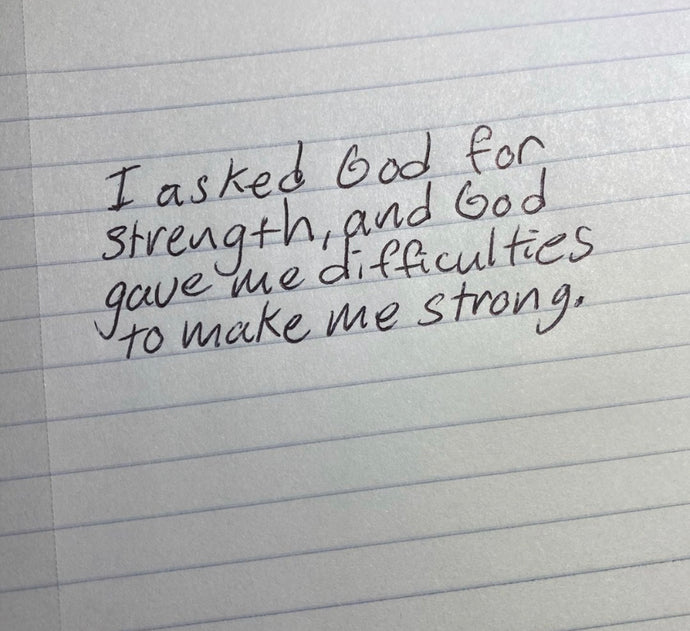 I asked God for
strength, and God
gave me difficulties
to make me strong.